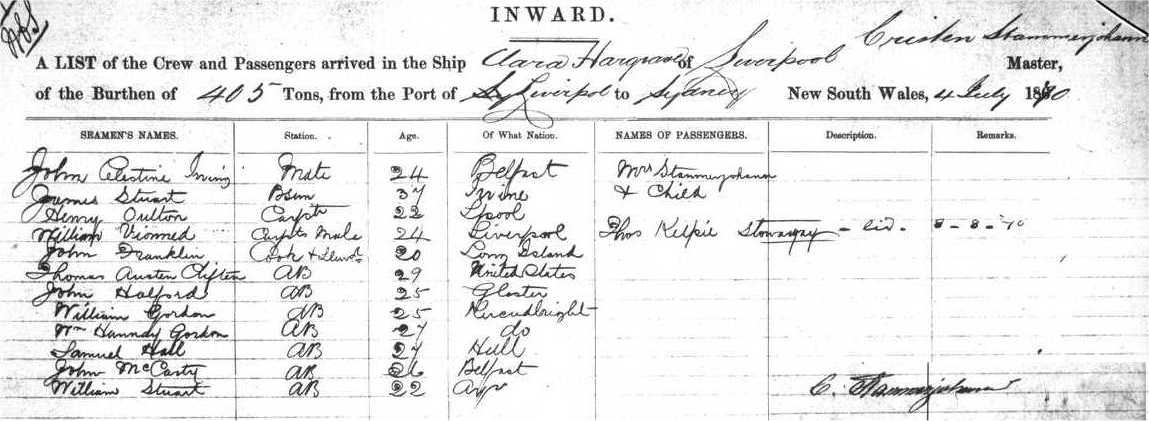 INWARD.
Cristen Stammerjohann
A LIST of the Crew and Passengers arrived in the Ship Clara Hargrave of Liverpool Master,
of the Burthen of 405 Tons, from the Port of Liverpol to Sydney New South Wales, 4 July 1870
SEAMEN'S NAMES. Station. Age. Of What Nation. NAMES OF PASSENGERS. Description. Remarks.
John Celestine Irving Mate 24 Belfast Mrs Stammerjohann
James Stuart Bsun 37 Irvine & Child
Henry Oulton Carptr 22 Lpool
William Vionned Carpts Mate 24 Liverpool Thos Kelpie Stowaway 8-8-70
John Franklin Cook & Stewd 20 Long Island
Thomas Austen Clifton AB 29 United States
John Halford AB 25 Gloster
William Gordon AB 25 Kircudbright
Wm Hannay Gordon AB 27 do
Samuel Hall AB 27 Hull
John McCarty AB 26 Belfast
William Stuart AB 22 Ayr
C. Stammerjohann